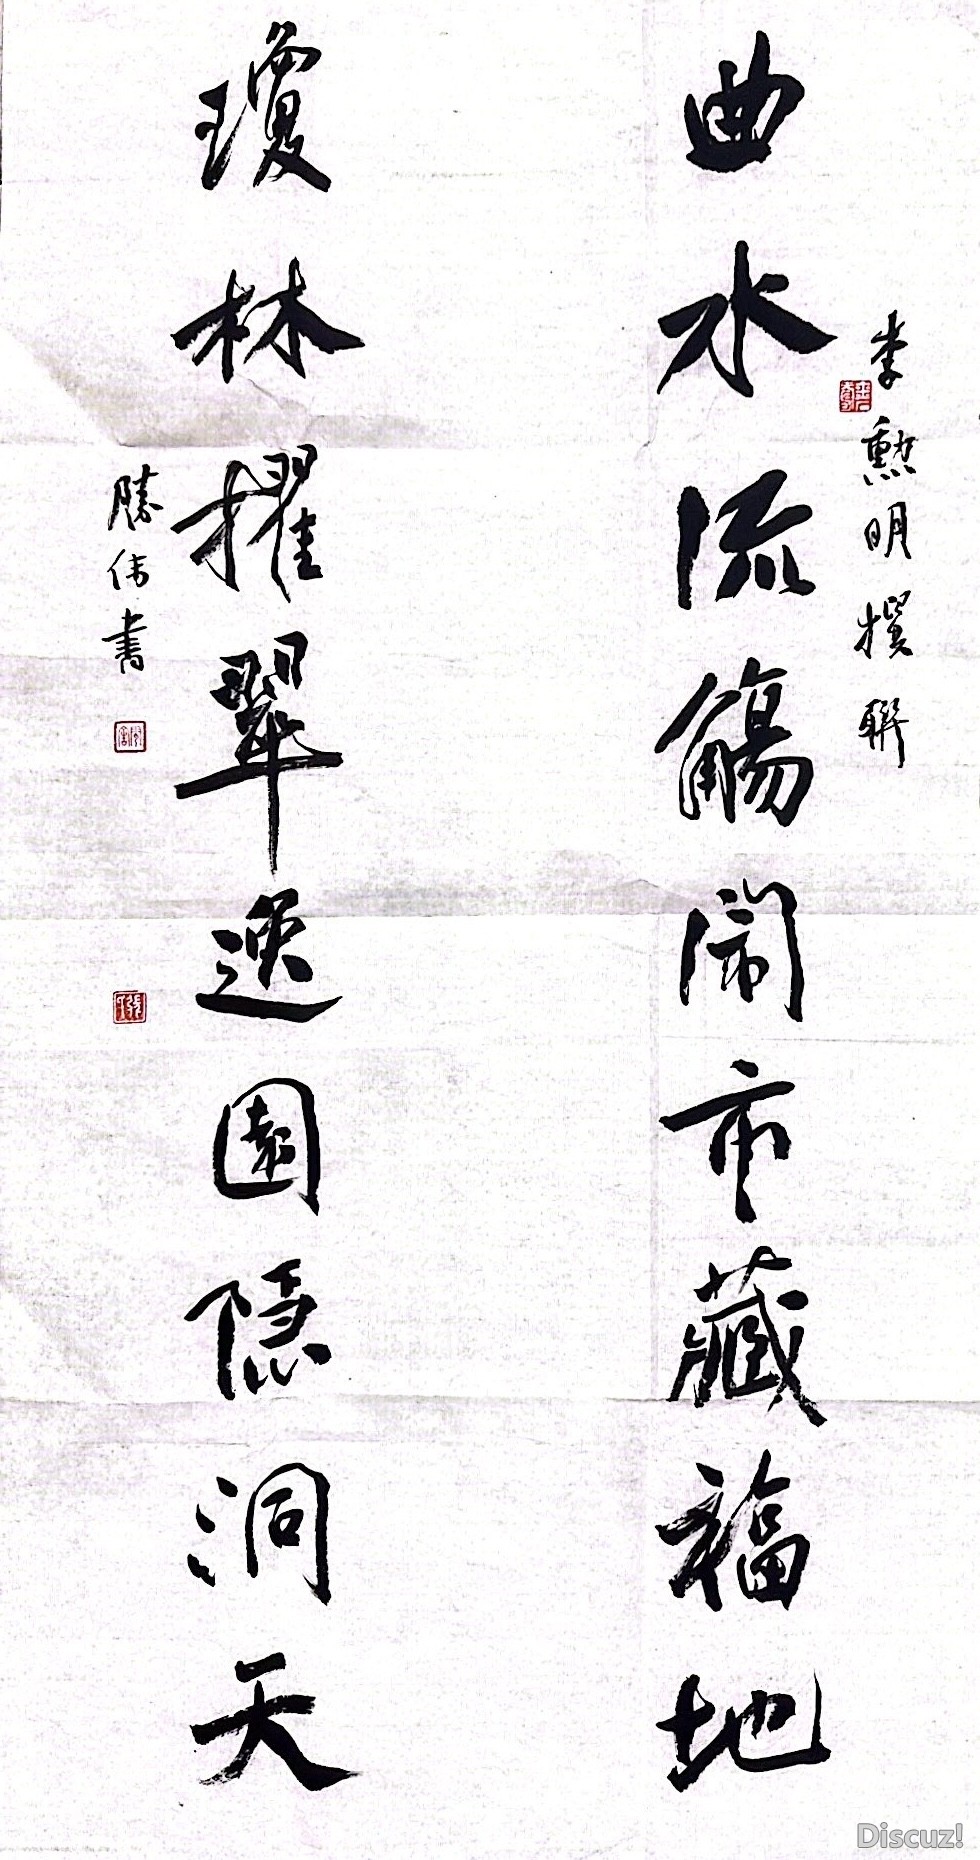 李勲明撰聯
曲水流觴閙市藏福地
瓊林擢翠逸園隐洞天
勝伟書
Discuz!